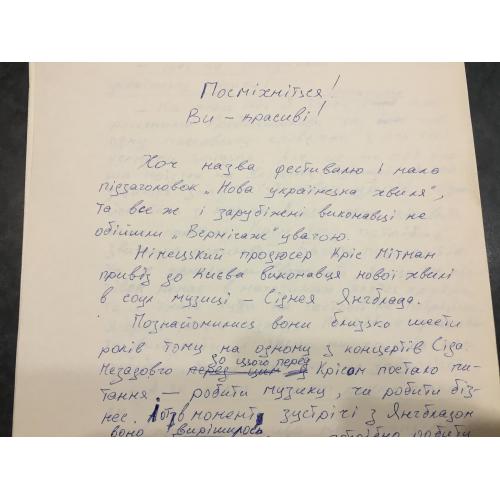 Посміхніться!
Ви – красиві!
Хоч назва фестивалю і мала
підзаголовок „Нова українська хвиля",
та все ж і зарубіжні виконавці не
обійшли „Вернісаж" увагою.
Німецький продюсер Кріс Мітман
привіз до Києва виконавця нової хвилі
в соул музиці – Сіднея Янгблада.
Познайомились вони близько шести
років тому на одному з концертів Сіда.
Незадовго до цього перед Крісом постало пи-
тання – робити музику, чи робити біз-
нес. І от в момент зустрічі з Янгбладом
воно вирішилось
робити